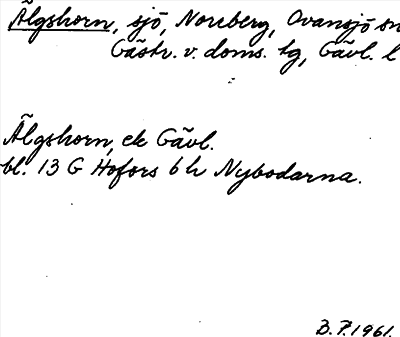 Älgshorn, sjö, Norrberg, Ovansjö sn
Gästr. v. doms. tg, Gävl. l
Älgshorn, ek Gävl.
bl. 13 G Hofors 6 h Nybodarna.
B. P. 1961.